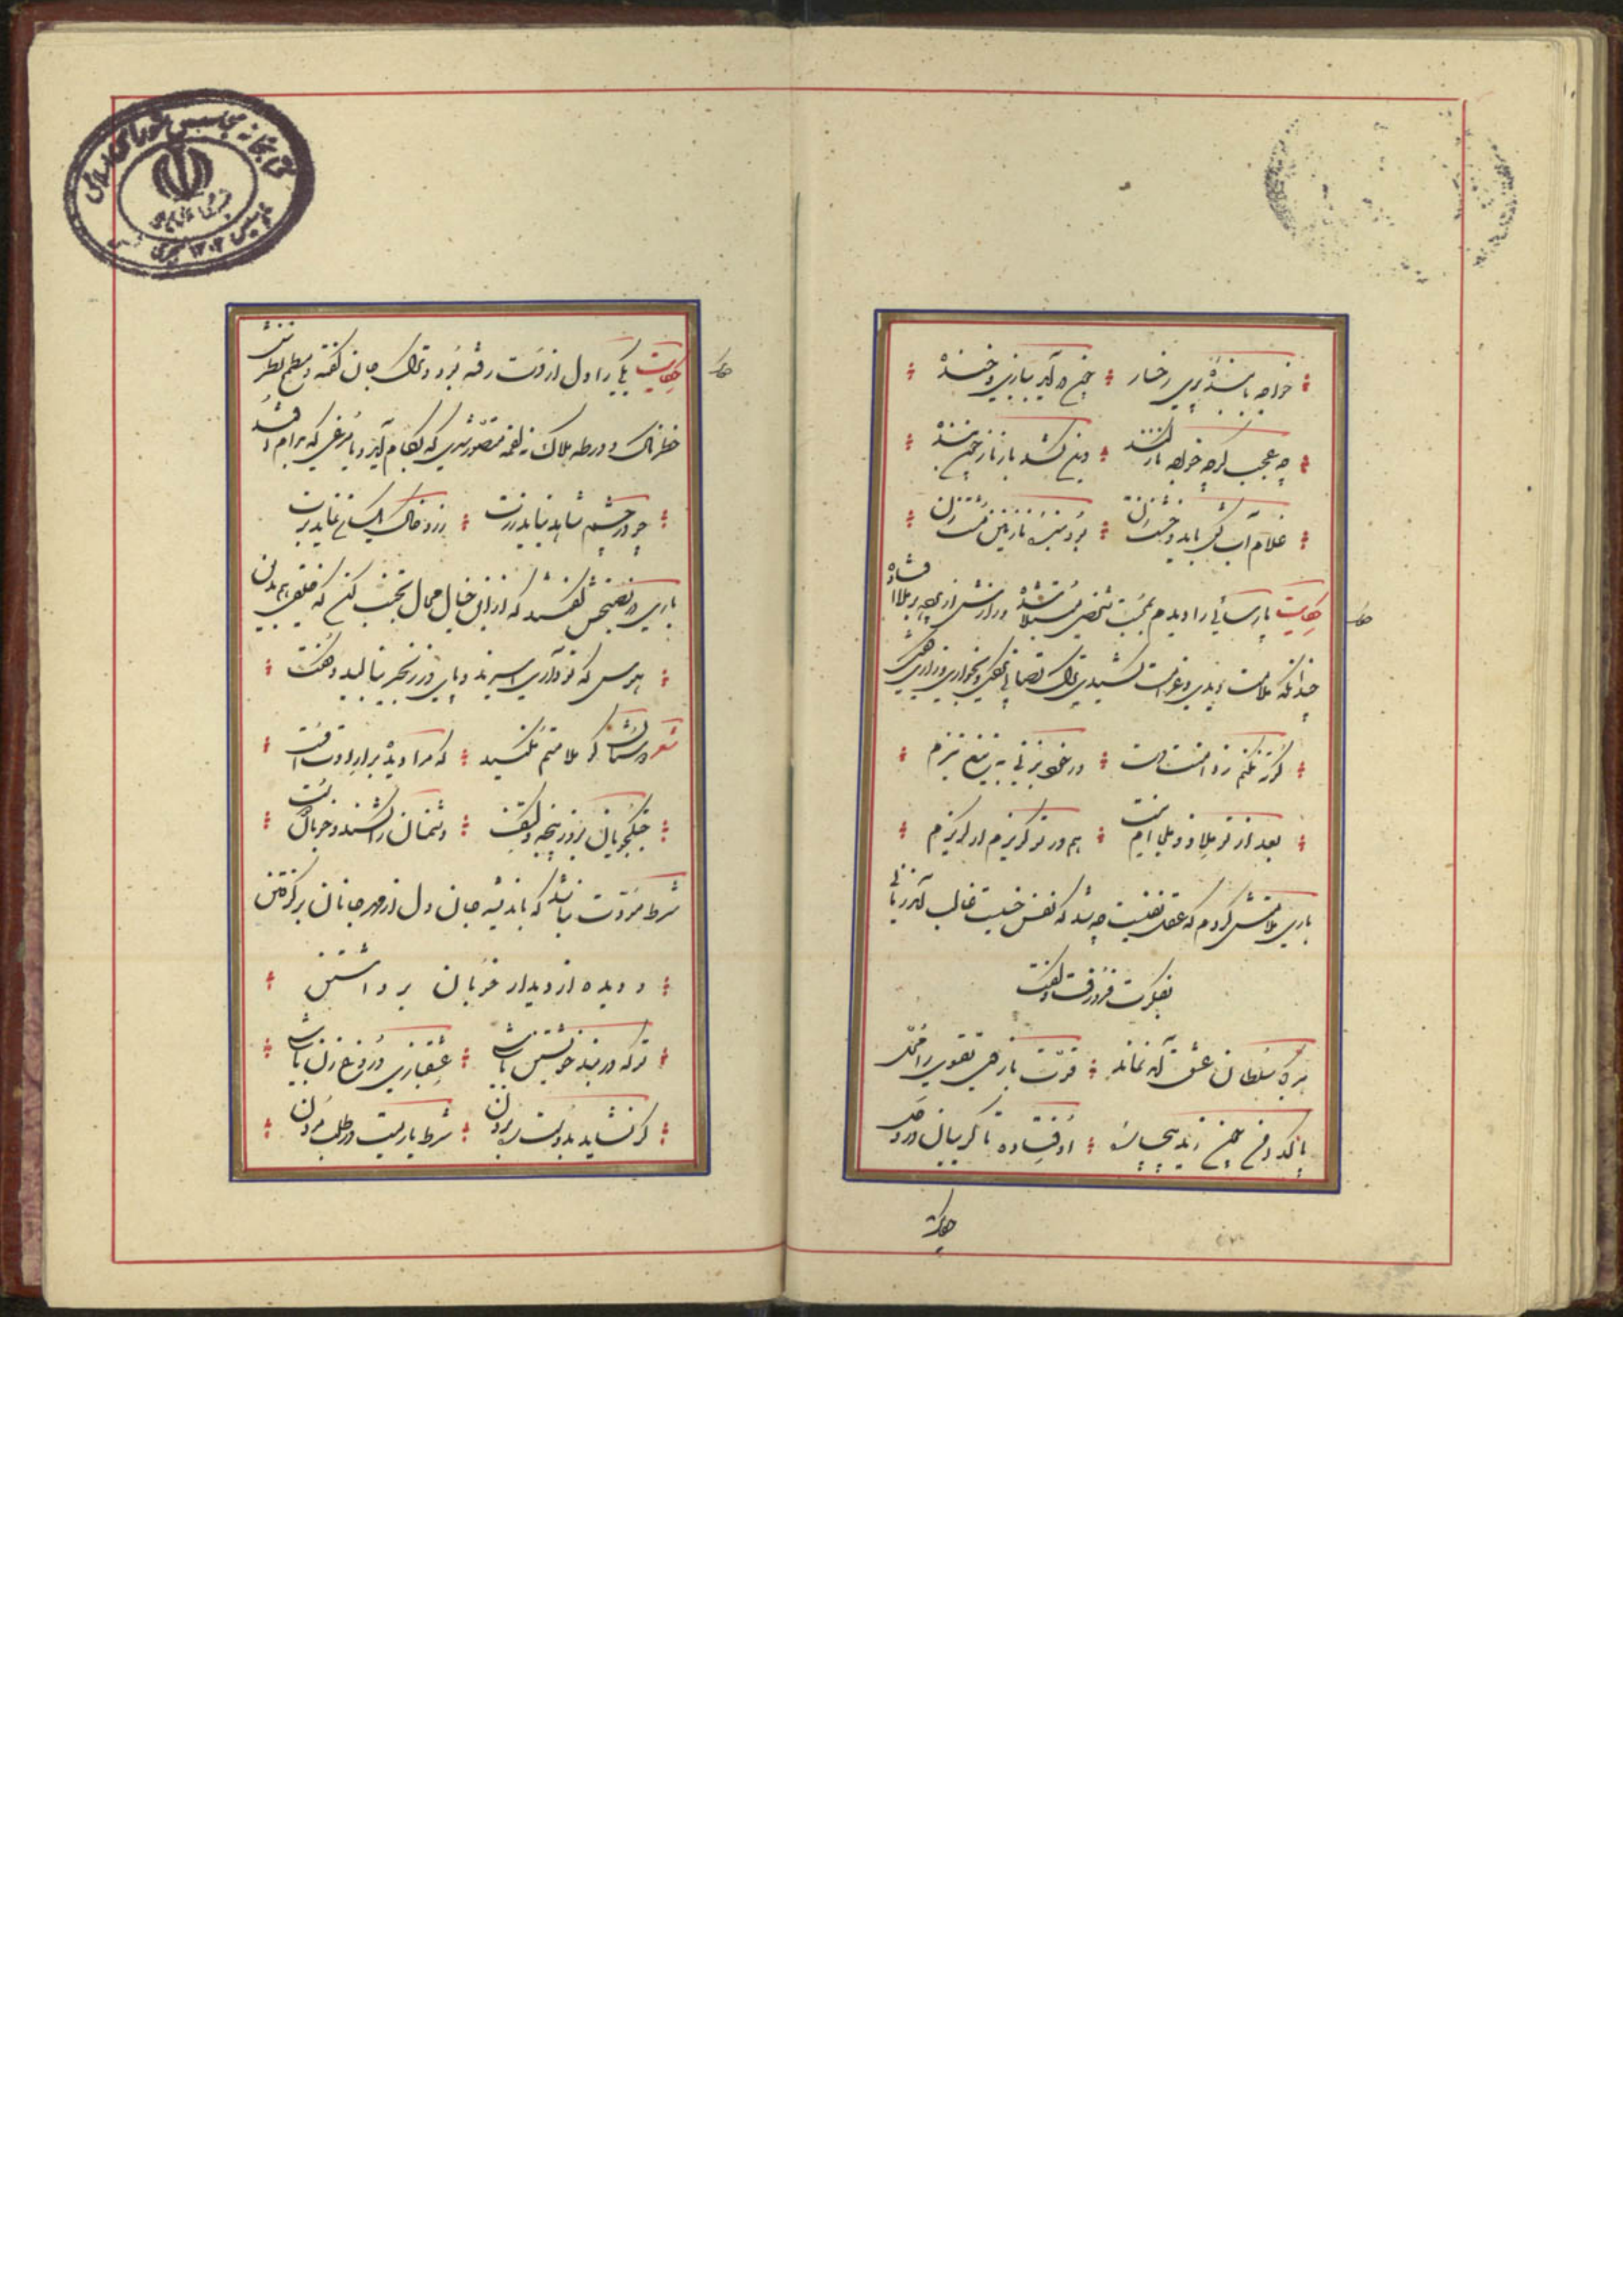 خواجه با بندهٔ پری رخسار ؛ چون در آید ببازی و خنده
چه عجب گرچه خواجه ناز کند ؛ وین کشد بار ناز چون بنده
غلام آب کش باید و خشت زن ؛ بود بندهٔ نازنین مشت زن
حکایت پارسائی را دیدم بمحبت شخصی مبتلا شده و رازش از پرده بر ملا افتاده
چندانکه ملامت دیدی و غرامت کشیدی ترک تصابی نکفتی و بخواری و زاری همی گفت
کوته نکنم ز دامنت دست ؛ ور خود بزنی به تیغ تیزم
بعد از تو ملاذ و ملجائیم نیست ؛ هم در تو گریزم ار گریزم
باری ملامتش کردم که عقل نفیست چه شد که نفس خسیست غالب آمد زمانی
بفکرت فرو رفت و گفت
هر کجا سلطان عشق آمد نماند ؛ قوت بازوی تقوی را محل
پاکدامن چون زید بیچاره‌ای ؛ اوفتاده تا گریبان در وحل
حکایت
حکایت یکی را دل از دست رفته بود و ترک جان گفته و مطمح نظرش
خطرناک و ورطه هلاک نه لقمه متصور شدی که بکام آید و یا مرغی که بدام افتد
چو در چشم شاهد نیاید زرت ؛ زر و خاک یکسان نماید برت
باری در نصیحتش گفتند که از این خیال محال تجنب کن که خلقی هم بدین
هوس که تو داری اسیرند و پای در زنجیر بنالید و گفت
شعر دوستان گو ملامتم نکنید ؛ که مرا دیده بر ارادت اوست
جنگجویان بزور پنجه و کتف ؛ دشمنان را کشند و خوبان دوست
شرط مودت نباشد که باندیشه جان دل از مهر جانان برگرفتن
و دیده از دیدار خوبان برداشتن
تو که در بند خویشتن باشی ؛ عشقبازی دروغ زن باشی
گر نشاید بدوست ره بردن ؛ شرط یاریست در طلب مردن